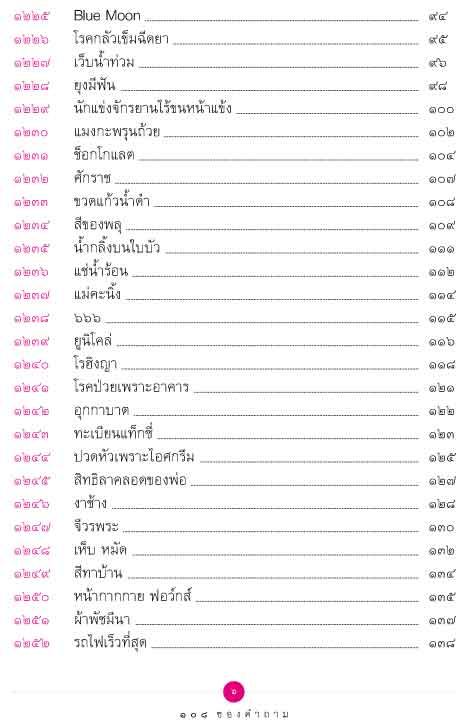 ๑๒๒๕ Blue Moon ๙๔
๑๒๒๖ โรคกลัวเข็มฉีดยา ๙๕
๑๒๒๗ เว็บน้ำท่วม ๙๖
๑๒๒๘ ยุงมีฟัน ๙๘
๑๒๒๙ นักแข่งจักรยานไร้ขนหน้าแข้ง ๑๐๐
๑๒๓๐ แมงกะพรุนถ้วย ๑๐๒
๑๒๓๑ ช็อกโกแลต ๑๐๔
๑๒๓๒ ศักราช ๑๐๗
๑๒๓๓ ขวดแก้วน้ำดำ ๑๐๘
๑๒๓๔ สีของพลุ ๑๐๙
๑๒๓๕ น้ำกลิ้งบนใบบัว ๑๑๑
๑๒๓๖ แช่น้ำร้อน ๑๑๒
๑๒๓๗ แม่คะนิ้ง ๑๑๔
๑๒๓๘ ๖๖๖ ๑๑๕
๑๒๓๙ ยูนิโคล่ ๑๑๖
๑๒๔๐ โรฮิงญา ๑๑๘
๑๒๔๑ โรคป่วยเพราะอาคาร ๑๒๑
๑๒๔๒ อุกกาบาต ๑๒๒
๑๒๔๓ ทะเบียนแท็กซี่ ๑๒๓
๑๒๔๔ ปวดหัวเพราะไอศกรีม ๑๒๕
๑๒๔๕ สิทธิลาคลอดของพ่อ ๑๒๗
๑๒๔๖ งาช้าง ๑๒๘
๑๒๔๗ จีวรพระ ๑๓๐
๑๒๔๘ เห็บ หมัด ๑๓๒
๑๒๔๙ สีทาบ้าน ๑๓๔
๑๒๕๐ หน้ากากกาย ฟอว์กส์ ๑๓๕
๑๒๕๑ ผ้าพัชมีนา ๑๓๗
๑๒๕๒ รถไฟเร็วที่สุด ๑๓๘
๖
๑๐๘ ซองคำถาม